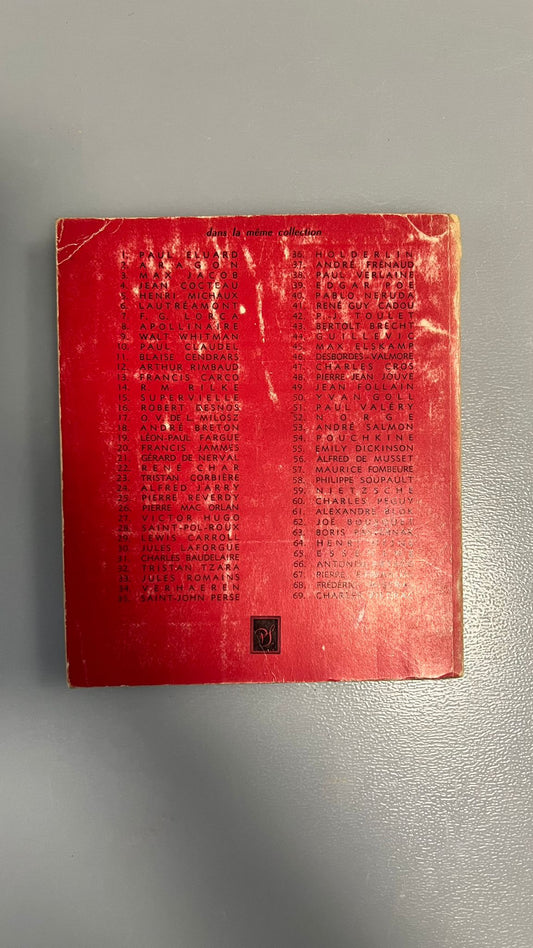 dans la même collection
1. PAUL ELUARD
2. ARAGON
3. MAX JACOB
4. JEAN COCTEAU
5. HENRI MICHAUX
6. LAUTRÉAMONT
7. F. G. LORCA
8. APOLLINAIRE
9. WALT WHITMAN
10. PAUL CLAUDEL
11. BLAISE CENDRARS
12. ARTHUR RIMBAUD
13. FRANCIS CARCO
14. R. M. RILKE
15. SUPERVIELLE
16. ROBERT DESNOS
17. O. V. DE L. MILOSZ
18. ANDRÉ BRETON
19. LÉON-PAUL FARGUE
20. FRANCIS JAMMES
21. GÉRARD DE NERVAL
22. RENÉ CHAR
23. TRISTAN CORBIÈRE
24. ALFRED JARRY
25. PIERRE REVERDY
26. PIERRE MAC ORLAN
27. VICTOR HUGO
28. SAINT-POL-ROUX
29. LEWIS CARROLL
30. JULES LAFORGUE
31. CHARLES BAUDELAIRE
32. TRISTAN TZARA
33. JULES ROMAINS
34. VERHAEREN
35. SAINT-JOHN PERSE
36. HOLDERLIN
37. ANDRÉ FRÉNAUD
38. PAUL VERLAINE
39. EDGAR POE
40. PABLO NERUDA
41. RENÉ GUY CADOU
42. P.-J. TOULET
43. BERTOLT BRECHT
44. GUILLEVIC
45. MAX ELSKAMP
46. DESBORDES-VALMORE
47. CHARLES CROS
48. PIERRE JEAN JOUVE
49. JEAN FOLLAIN
50. YVAN GOLL
51. PAUL VALÉRY
52. NORGE
53. ANDRÉ SALMON
54. POUCHKINE
55. EMILY DICKINSON
56. ALFRED DE MUSSET
57. MAURICE FOMBEURE
58. PHILIPPE SOUPAULT
59. NIETZSCHE
60. CHARLES PÉGUY
61. ALEXANDRE BLOK
62. JOË
63. BORIS
64.
65.
66.
67. PIERRE
68. FRÉDÉRIC
69. CHARLES